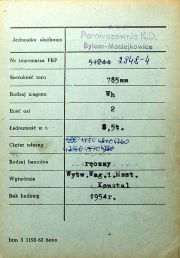 Jednostka służbowa Parowozownia K.D.
Bytom-Maciejkowice
Nr inwentarza PKP 51244 2848-4
Szerokość toru 785mm
Rodzaj wagonu Wh
Ilość osi 2
Ładowność w t 8,5t.
Ciężar własny
Rodzaj hamulca ręczny
Wytwórnia Wytw.Wag.i.Most.
Konstal
Rok budowy 1954r.